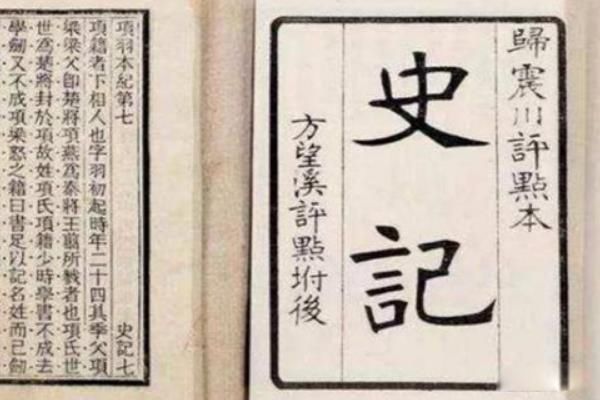 歸震川評點本
史記
方望溪評點坿後
項羽本紀第七
史記七
項籍者下相人也字羽初起時年二十四其季父項
梁梁父卽楚將項燕爲秦將王翦所戮者也項氏世
世爲楚將封於項故姓項氏項籍少時學書不成去
學劒又不成項梁怒之籍曰書足以記名姓而已劒